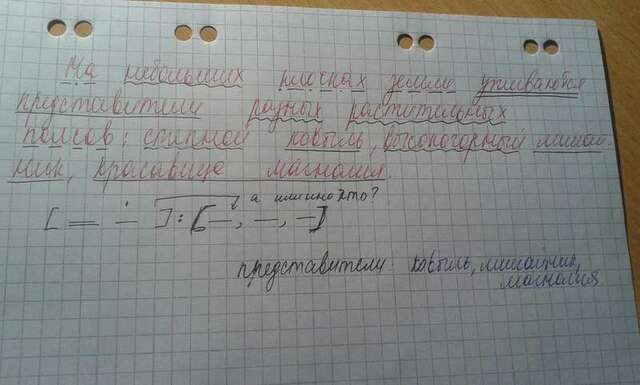 На небольших клочках земли уживаются
представители разных растительных
поясов: степной ковыль, высокогорный лишай-
ник, красавица магнолия.
[ == — ] : [ —, —, — ] а именно кто?
представители ковыль, лишайник,
магнолия